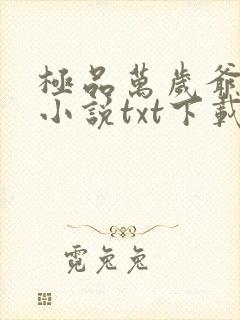 極品萬歲爺
小說txt下載
霓兔兔